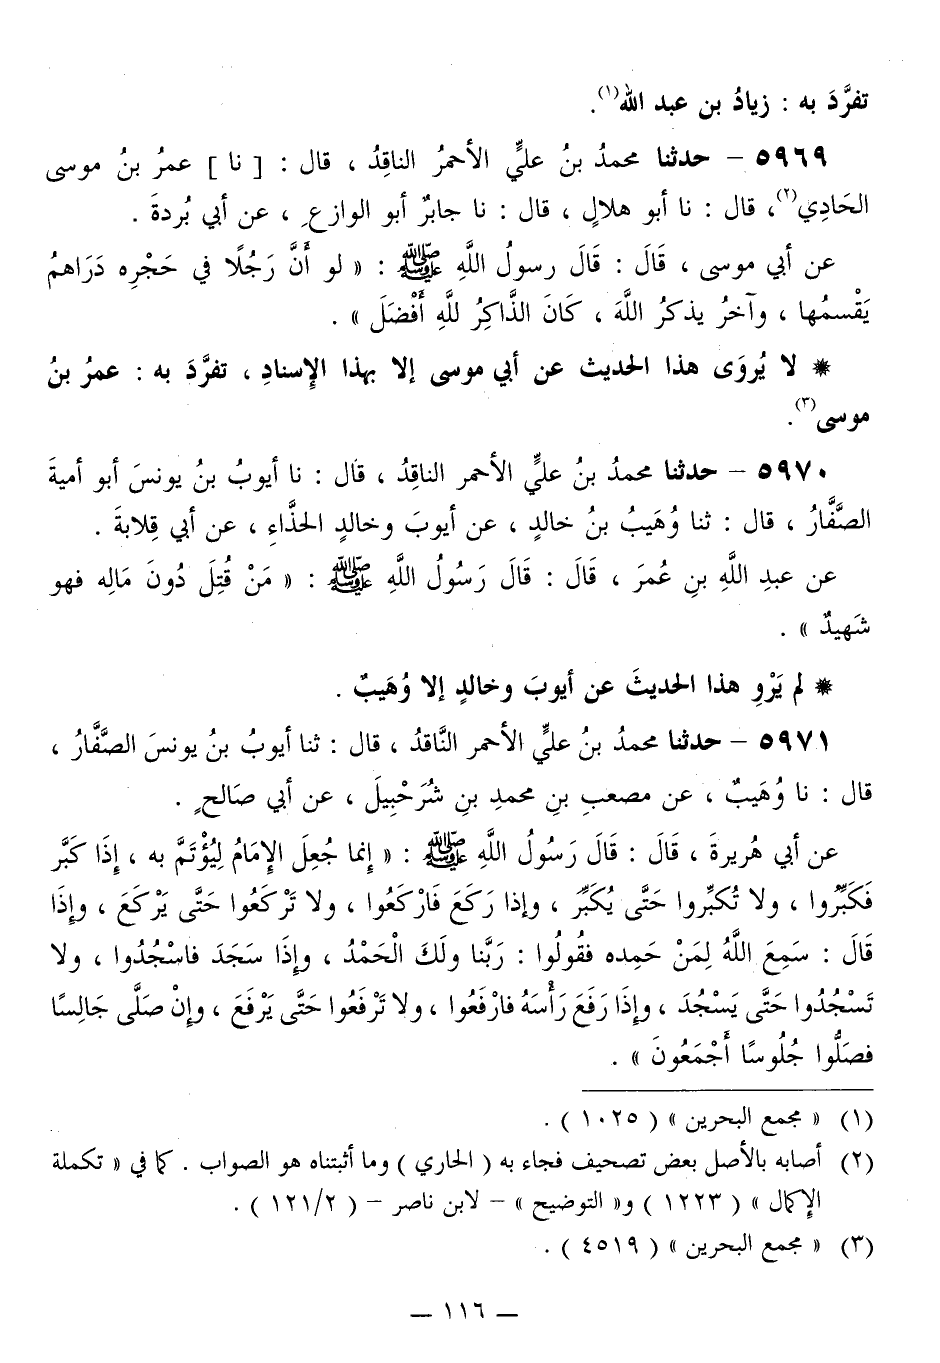 تفرَّدَ به : زيادُ بن عبد الله(١).
٥٩٦٩ – حدثنا محمدُ بنُ عليٍّ الأحمرُ الناقِدُ ، قال : [ نا ] عمرُ بنُ موسى
الحَادِي(٢)، قال : نا أبو هلالٍ ، قال : نا جابرٌ أبو الوازعِ ، عن أبي بُردةَ .
عن أبي موسى ، قَالَ : قَالَ رسولُ اللَّهِ ﷺ : « لو أَنَّ رَجُلًا في حَجْرِه دَرَاهمُ
يَقْسمُها ، وآخرُ يذكرُ اللَّهَ ، كَانَ الذَّاكِرُ للَّهِ أَفْضَلَ » .
* لا يُروَى هذا الحديث عن أبي موسى إلا بهذا الإسنادِ ، تفرَّدَ به : عمرُ بنُ
موسى(٣).
٥٩٧٠ – حدثنا محمدُ بنُ عليٍّ الأحمر الناقِدُ ، قال : نا أيوبُ بنُ يونسَ أبو أميةَ
الصَّفَّارُ ، قال : ثنا وُهَيبُ بنُ خالدٍ ، عن أيوبَ وخالدٍ الحذَّاءِ ، عن أبي قِلابةَ .
عن عبدِ اللَّهِ بنِ عُمرَ ، قَالَ : قَالَ رَسُولُ اللَّهِ ﷺ : « مَنْ قُتِلَ دُونَ مَالِه فهو
شَهيدٌ » .
* لم يَرْوِ هذا الحديثَ عن أيوبَ وخالدٍ إلا وُهَيبٌ .
٥٩٧١ – حدثنا محمدُ بنُ عليٍّ الأحمر النَّاقدُ ، قال : ثنا أيوبُ بنُ يونسَ الصَّفَّارُ ،
قال : نا وُهَيبٌ ، عن مصعبِ بنِ محمدِ بنِ شُرَحْبِيلَ ، عن أبي صَالحٍ .
عن أبي هُريرةَ ، قَالَ : قَالَ رَسُولُ اللَّهِ ﷺ : « إِنما جُعِلَ الإِمَامُ لِيُؤْتَمَّ به ، إِذَا كَبَّر
فَكَبِّرُوا ، ولا تُكبِّروا حَتَّى يُكَبِّرَ ، وإذا رَكَعَ فَارْكَعُوا ، ولا تَرْكَعُوا حَتَّى يَرْكَعَ ، وإِذَا
قَالَ : سَمِعَ اللَّهُ لِمَنْ حَمِده فقُولُوا : رَبَّنا ولَكَ الْحَمْدُ ، وإِذَا سَجَدَ فاسْجُدُوا ، ولا
تَسْجُدُوا حَتَّى يَسْجُدَ ، وإِذَا رَفَعَ رَأْسَهُ فارْفَعُوا ، ولا تَرْفَعُوا حَتَّى يَرْفَعَ ، وإِنْ صَلَّى جَالِسًا
فصَلُّوا جُلُوسًا أَجْمَعُونَ » .
(١) « مجمع البحرين » ( ١٠٢٥ ) .
(٢) أصابه بالأصل بعض تصحيف فجاء به ( الحاري ) وما أثبتناه هو الصواب . كما في « تكملة
الإكمال » ( ١٢٢٣ ) و« التوضيح » – لابن ناصر – ( ١٢١/٢ ) .
(٣) « مجمع البحرين » ( ٤٥١٩ ) .
— ١١٦ —